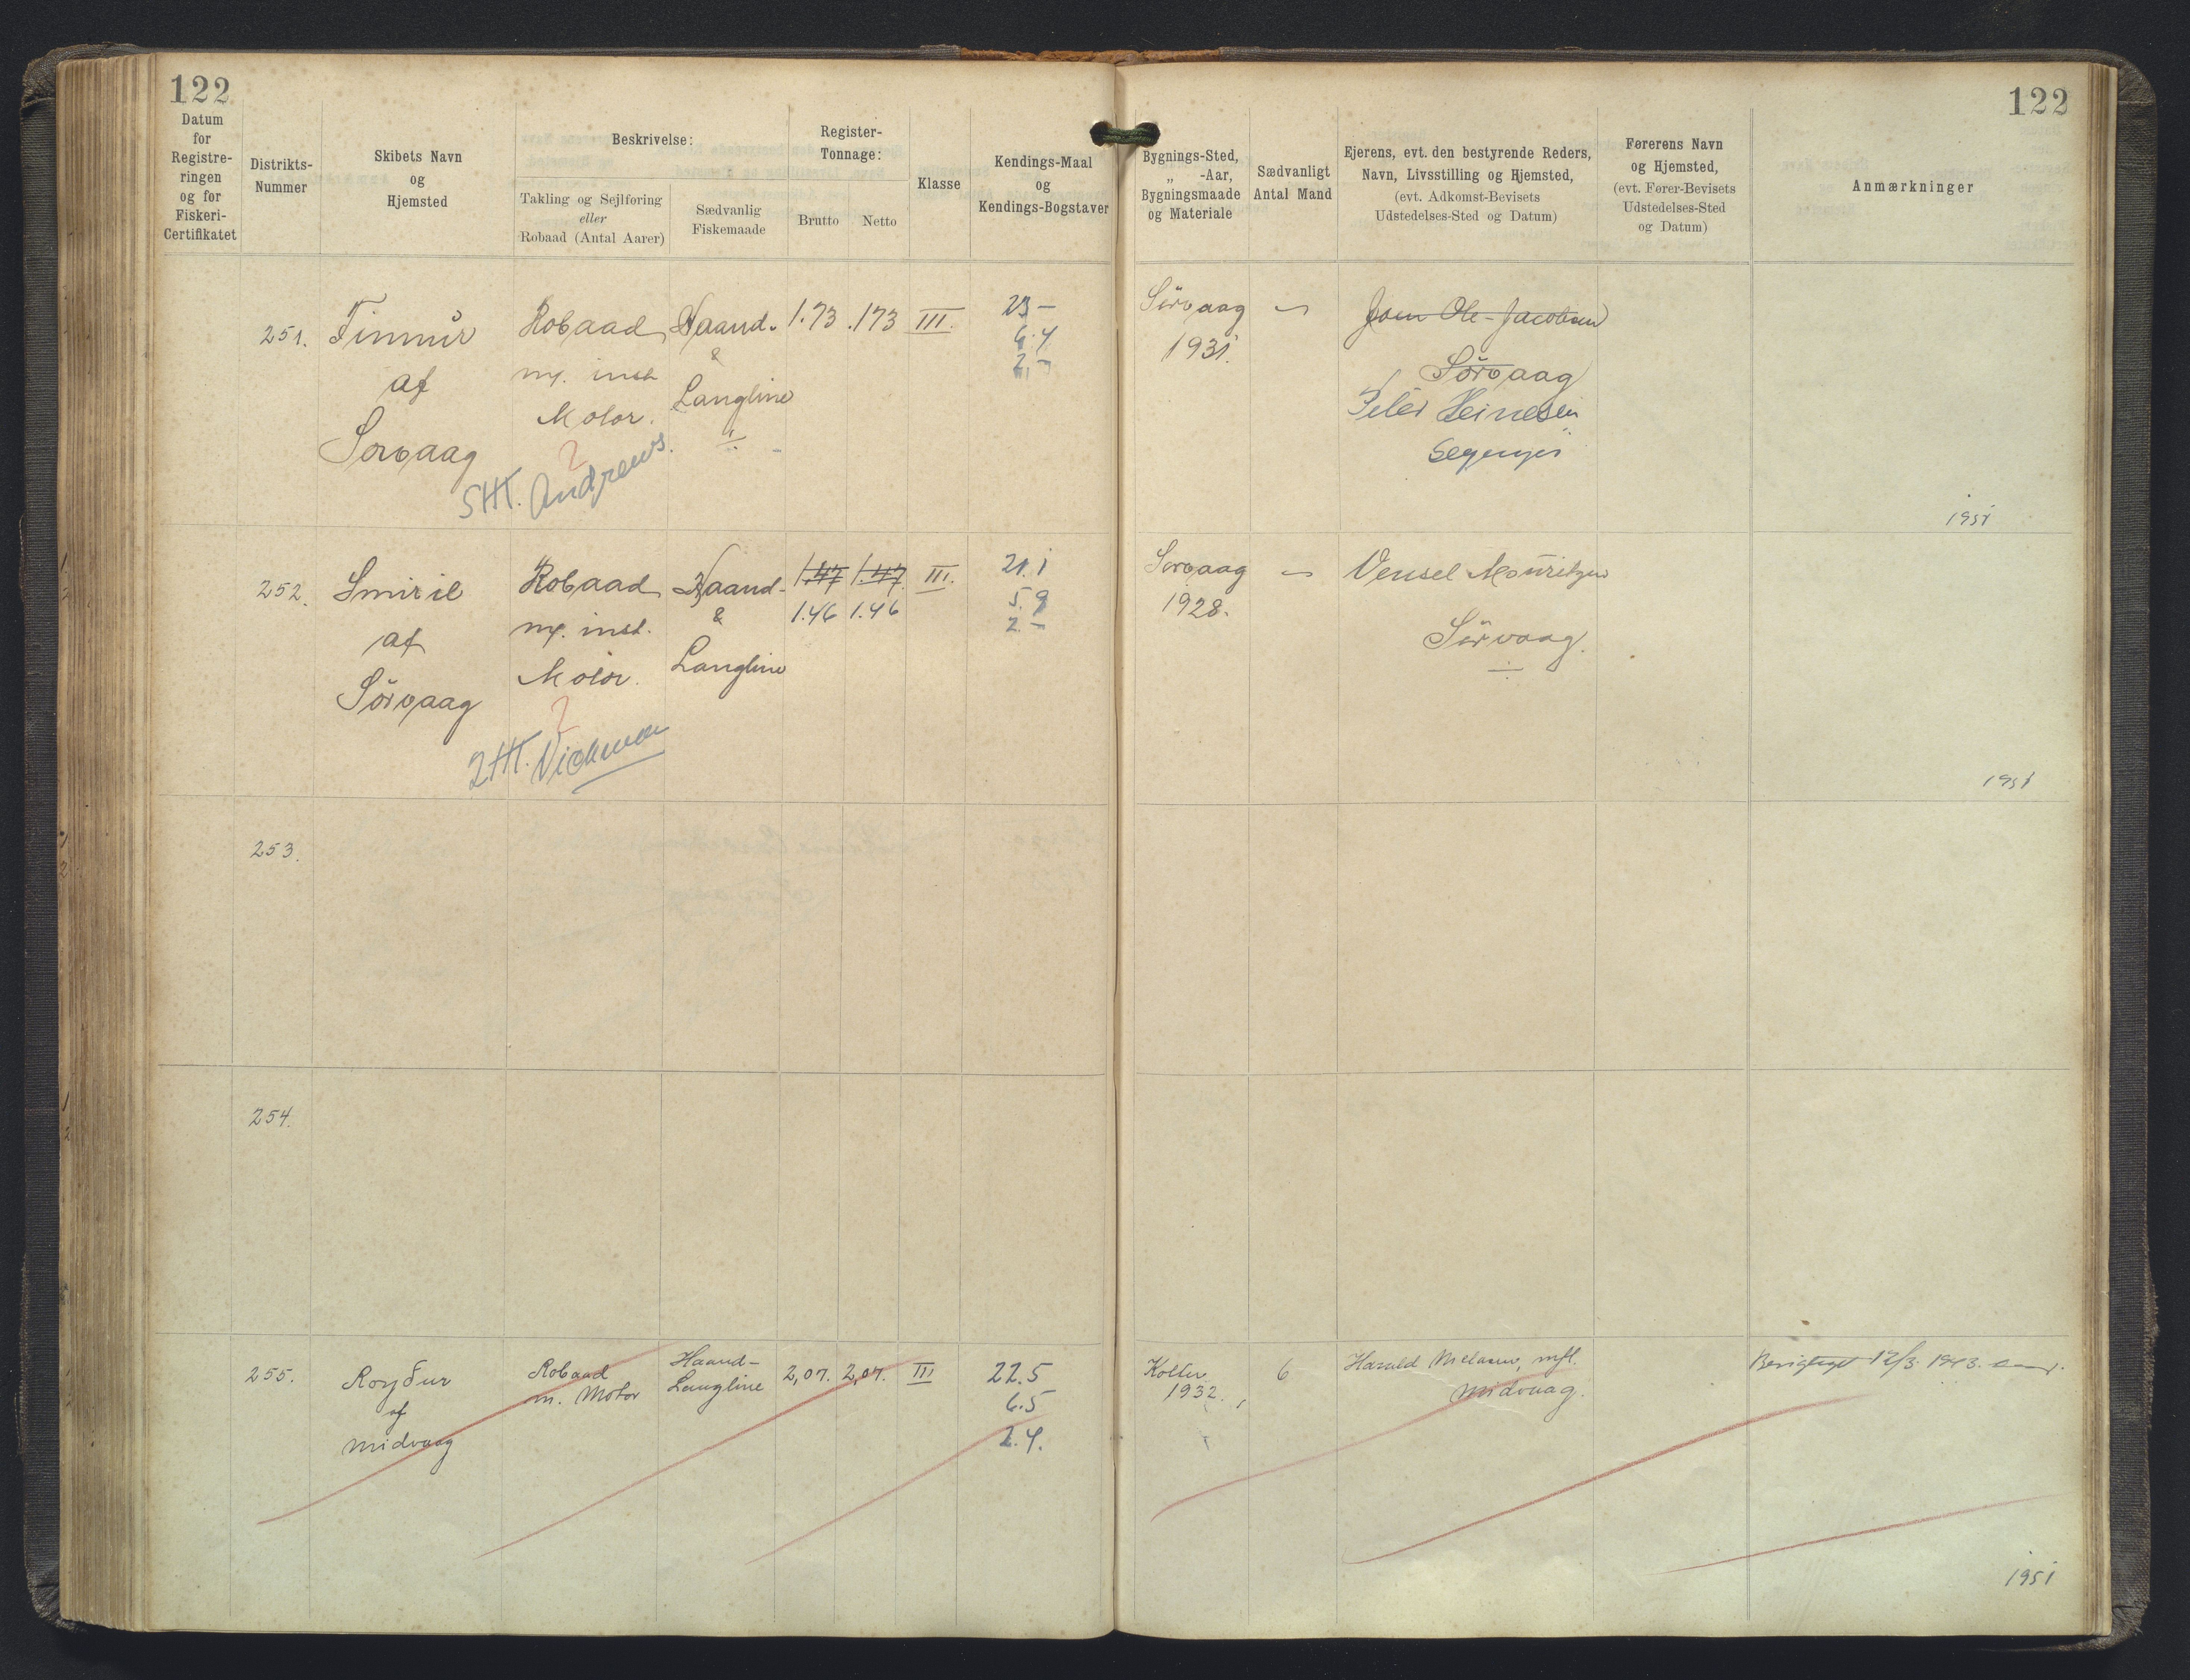 122
122
Datum
for
Registre-
ringen
og for
Fiskeri-
Certifikatet
Distrikts-
Nummer
Skibets Navn
og
Hjemsted
Beskrivelse:
Takling og Sejlføring
eller
Robaad (Antal Aarer)
Sædvanlig
Fiskemaade
Register-
Tonnage:
Brutto
Netto
Klasse
Kendings-Maal
og
Kendings-Bogstaver
Bygnings-Sted,
„ -Aar,
Bygningsmaade
og Materiale
Sædvanligt
Antal Mand
Ejerens, evt. den bestyrende Reders,
Navn, Livsstilling og Hjemsted,
(evt. Adkomst-Bevisets
Udstedelses-Sted og Datum)
Førerens Navn
og Hjemsted,
(evt. Fører-Bevisets
Udstedelses-Sted
og Datum)
Anmærkninger
251.
Finnur
af
Sorvaag
Robaad
m. inst
Motor.
5 HK. Andrews.
Haand-
&
Langline
1.73
.173
III.
23 –
6.4
2. –
Sörvaag
1931.
Joen Ole-Jacobsen
Sörvaag
Peter Heinesen
1951
252.
Smiril
af
Sörvaag
Robaad
m. inst.
Motor.
2 HK. Vichman
Haand-
&
Langline
1.47 1.47
1.46 1.46
III.
21.1
5.9
2. –
Sorvaag
1928.
Vensel Mouritzen
Sörvaag.
1951
253.
254.
255.
Royður
af
Midvaag
Robaad
m. Motor
Haand-
Langline
2,07.
2,07.
III
22.5
6.5
2.4.
Kolter
1932.
6
Harald Nielasen, mfl.
Midvaag.
12/3. 1943.
1951